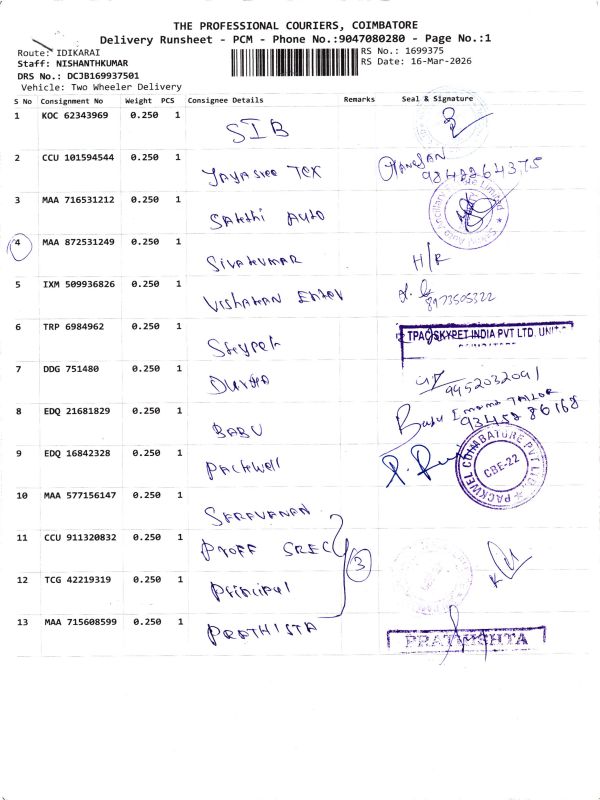 THE PROFESSIONAL COURIERS, COIMBATORE
Delivery Runsheet - PCM - Phone No.:9047080280 - Page No.:1
Route: IDIKARAI
RS No.: 1699375
Staff: NISHANTHKUMAR
RS Date: 16-Mar-2026
DRS No.: DCJB169937501
Vehicle: Two Wheeler Delivery
S No Consignment No Weight PCS Consignee Details Remarks Seal & Signature
1 KOC 62343969 0.250 1 SIB
2 CCU 101594544 0.250 1 Jayasree Tex
3 MAA 716531212 0.250 1 Sakthi Auto
4 MAA 872531249 0.250 1 Sivakumar H/R
5 IXM 509936826 0.250 1 Vishakan 8973505322
6 TRP 6984962 0.250 1 Skypet TPAC SKYPET INDIA PVT LTD. UNIT
7 DDG 751480 0.250 1 Durga 9952032091
8 EDQ 21681829 0.250 1 BABU Babu TAILOR
93452 86168
9 EDQ 16842328 0.250 1 Packwell PACKWEL COIMBATORE PVT LTD. CBE-22
10 MAA 577156147 0.250 1 SARAVANAN
11 CCU 911320832 0.250 1 Proff SREC 3
12 TCG 42219319 0.250 1 Principal
13 MAA 715608599 0.250 1 PRATHISTA PRATHISHTA